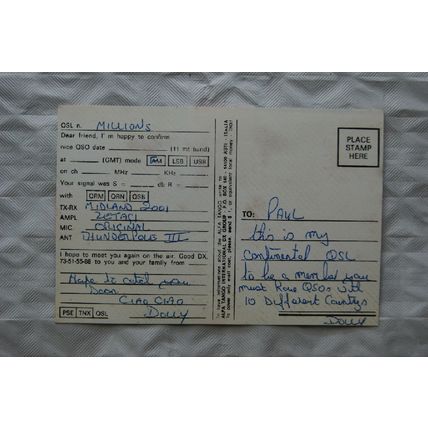 QSL n. MILLIONS
Dear friend, I'm happy to confirm
nice QSO date (11 mt band)
at (GMT) mode AM LSB USB
on ch MHz KHz
Your signal was S db R
with QRM QRN QSB
TX-RX MIDLAND 2001
AMPL ZETAGI
MIC. ORIGINAL
ANT THUNDERPOLE III
I hope to meet you again on the air. Good DX,
73-51-55-88 to you and your family from
Hope to catch you
Soon
CIAO CIAO
Dolly
PSE TNX QSL
ALFA TANGO INTERNATIONAL DX GROUP - P.O. BOX
ASTI - ITALIA
PLACE
STAMP
HERE
TO: PAUL
this is my
Continental QSL
to be a member you
must have QSOs with
10 Different Countrys
Dolly